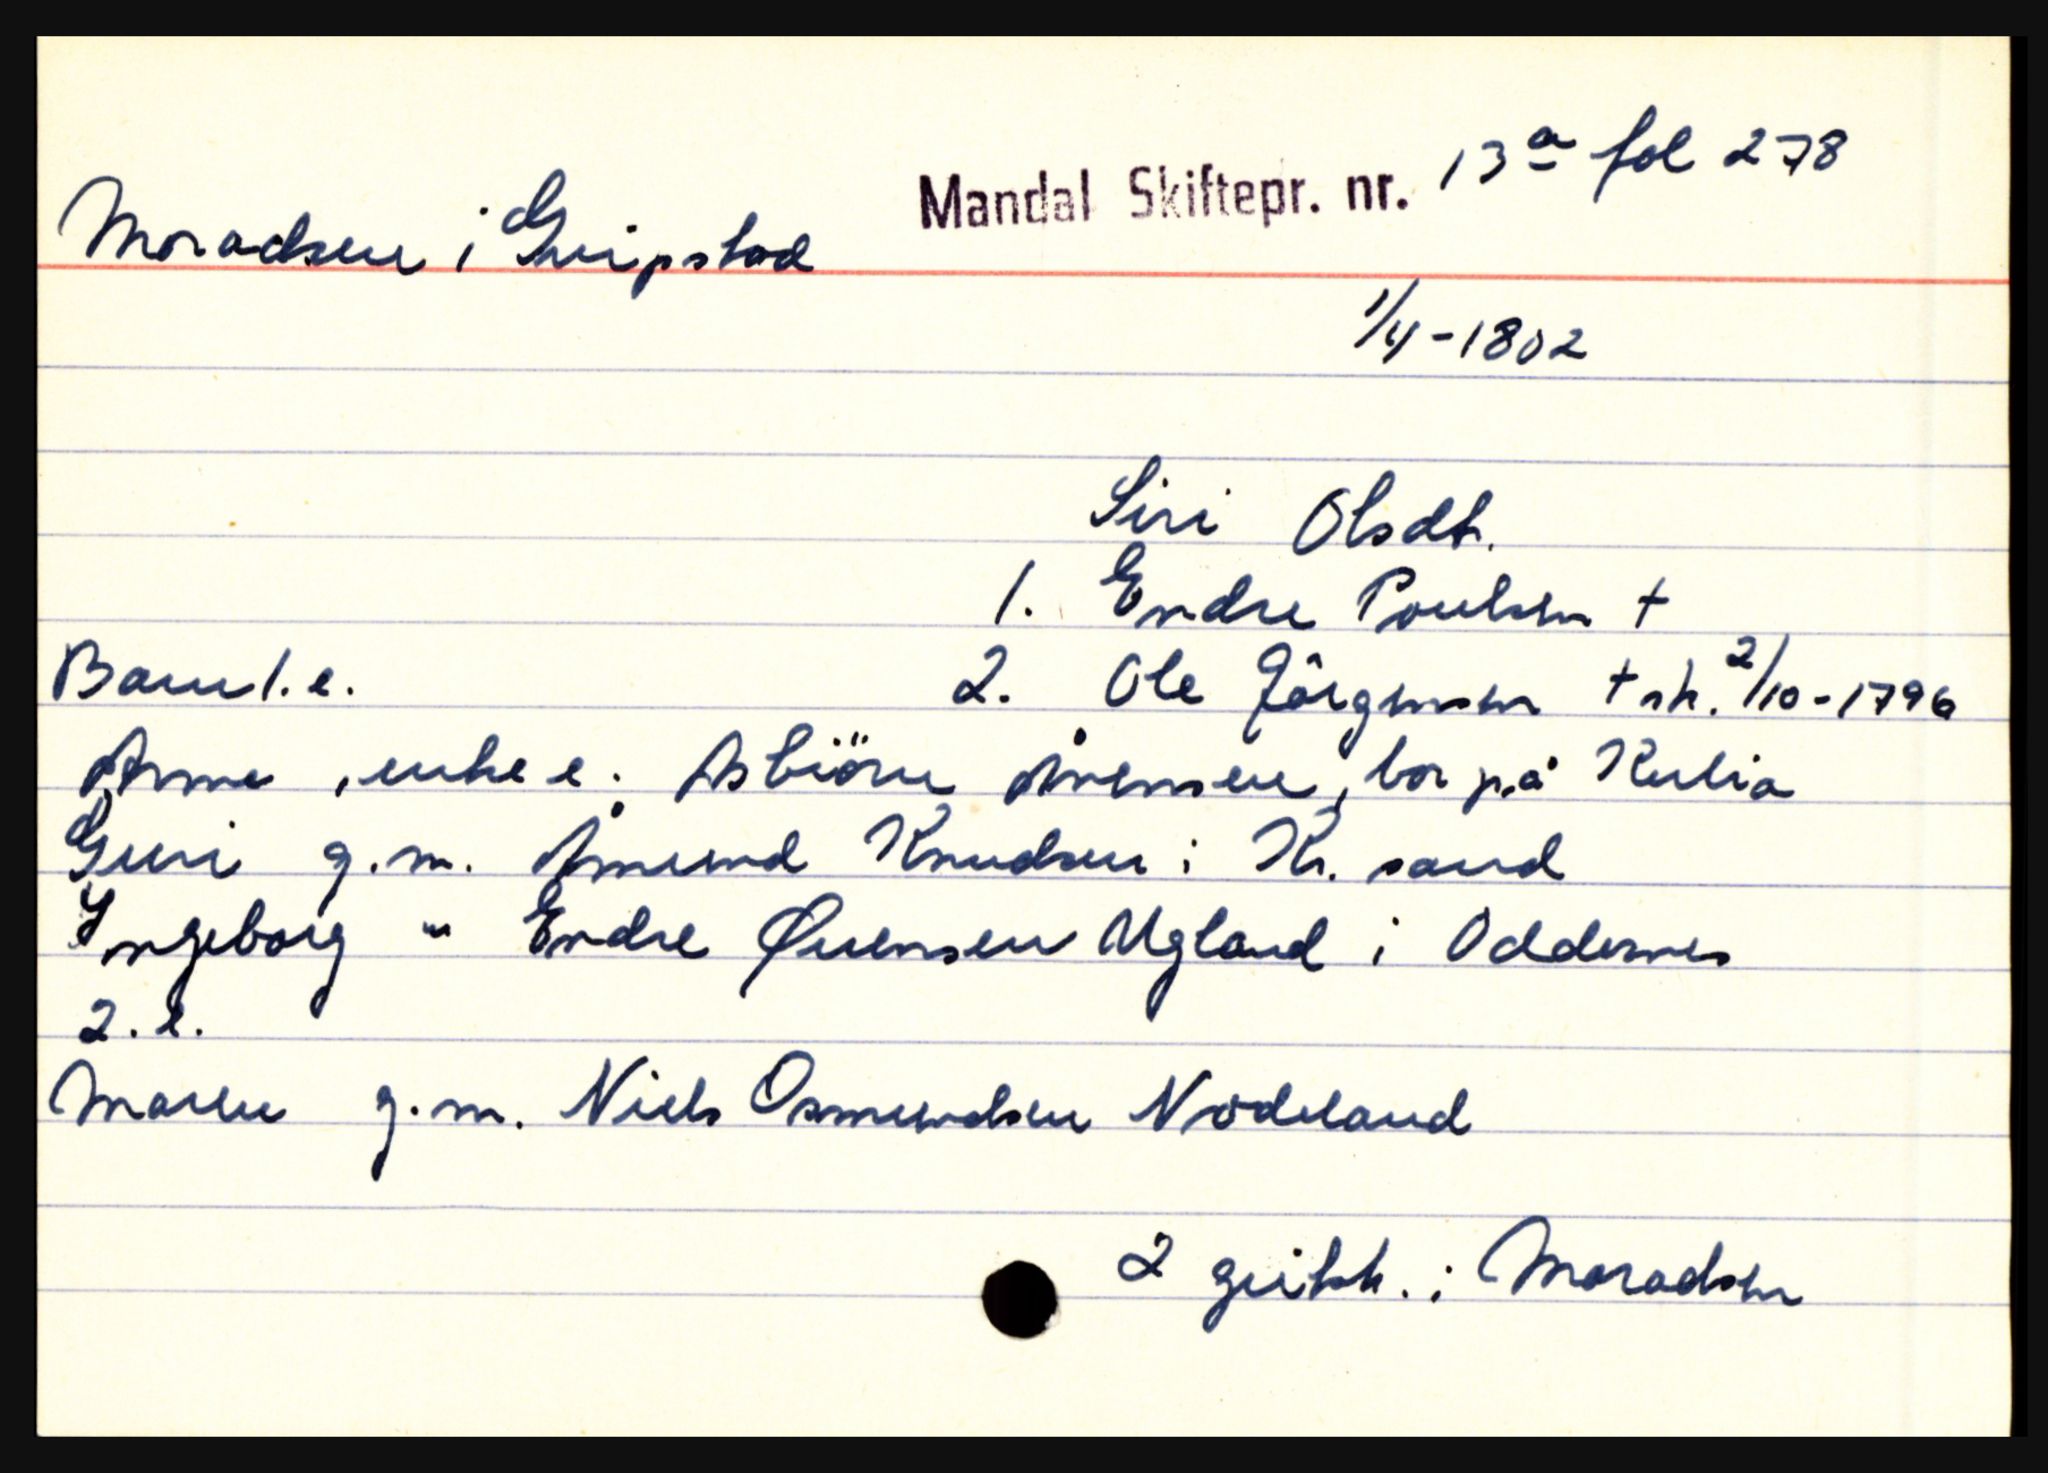 Mandal Skiftepr. nr. 13a fol 278
Moradsen i Greipstad
1/4-1802
Siri Olsdt.
1. Endre Poulsen +
Barn 1. e. 2. Ole Jörgensen + sk. 2/10-1796
Anne, enke e. Asbiörn Arensen, bor på Kulia
Guri g.m. Åmund Knudsen i Kr.sand
Ingeborg " Endre Øvensen Ugland i Oddernes
2. e.
Maren g.m. Niels Osmundsen Nodeland
2 geibk. i Moradsen